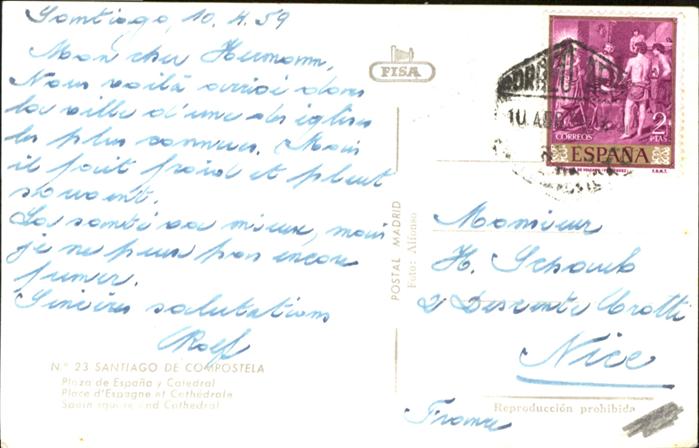 Santiago, 10.4.59
Mon cher Hermann,
Nous voilà arrivé dans
la ville d'une des églises
les plus connues. Mais
il fait froid et pleut
souvent.
La santé va mieux, mais
je ne peux pas encore
fumer.
Sincères salutations
Rolf
Nº 23 SANTIAGO DE COMPOSTELA
Plaza de España y Catedral
Place d'Espagne et Cathédrale
Spain square and Cathedral
FISA
POSTAL MADRID
Foto: Alfonso
10 ABR
2 PTAS
CORREOS
ESPAÑA
F.N.M.T.
Monsieur
H. Schaub
2 Descente Crotti
Nice
France
Reproducción prohibida